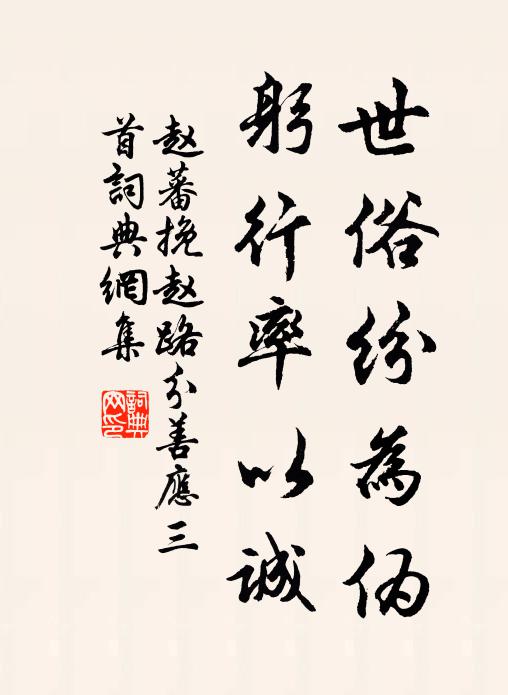 世俗紛為偽
躬行率以誠
赵蕃挽赵路分善應三
首詞典網集
詞典
网印